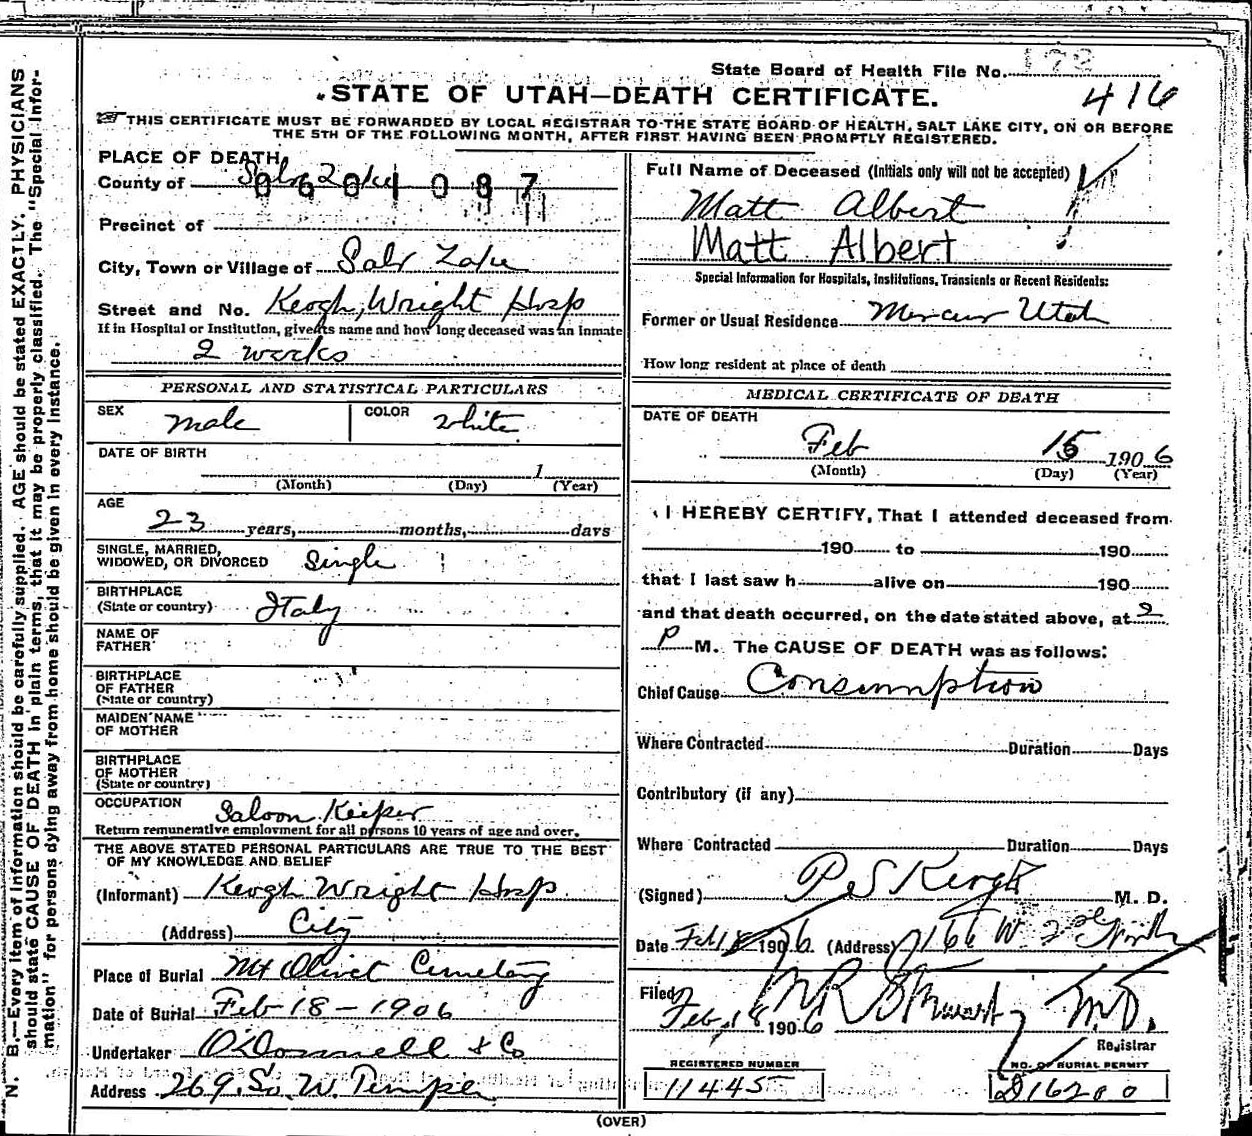 State Board of Health File No. 172
416
STATE OF UTAH—DEATH CERTIFICATE.
THIS CERTIFICATE MUST BE FORWARDED BY LOCAL REGISTRAR TO THE STATE BOARD OF HEALTH, SALT LAKE CITY, ON OR BEFORE
THE 5TH OF THE FOLLOWING MONTH, AFTER FIRST HAVING BEEN PROMPTLY REGISTERED.
N. B.—Every item of information should be carefully supplied. AGE should be stated EXACTLY. PHYSICIANS
should state CAUSE OF DEATH in plain terms, that it may be properly classified. The "Special Infor-
mation" for persons dying away from home should be given in every instance.
PLACE OF DEATH
County of Salt Lake
0601087
Precinct of
City, Town or Village of Salt Lake
Street and No. Keogh, Wright Hosp
If in Hospital or Institution, give its name and how long deceased was an inmate
2 weeks
PERSONAL AND STATISTICAL PARTICULARS
SEX male COLOR white
DATE OF BIRTH
1
(Month) (Day) (Year)
AGE
23 years, months, days
SINGLE, MARRIED,
WIDOWED, OR DIVORCED Single
BIRTHPLACE
(State or country) Italy
NAME OF
FATHER
BIRTHPLACE
OF FATHER
(State or country)
MAIDEN NAME
OF MOTHER
BIRTHPLACE
OF MOTHER
(State or country)
OCCUPATION Saloon Keeper
Return remunerative employment for all persons 10 years of age and over.
THE ABOVE STATED PERSONAL PARTICULARS ARE TRUE TO THE BEST
OF MY KNOWLEDGE AND BELIEF
(Informant) Keogh Wright Hosp.
(Address) City
Place of Burial Mt Olivet Cemetery
Date of Burial Feb 18 - 1906
Undertaker O'Donnell & Co
Address 269 So. W. Temple
Full Name of Deceased (Initials only will not be accepted)
Matt Albert
Matt Albert
Special Information for Hospitals, Institutions, Transients or Recent Residents:
Former or Usual Residence Mercur Utah
How long resident at place of death
MEDICAL CERTIFICATE OF DEATH
DATE OF DEATH
Feb 15 1906
(Month) (Day) (Year)
I HEREBY CERTIFY, That I attended deceased from
190 to 190
that I last saw h alive on 190
and that death occurred, on the date stated above, at 2
P M. The CAUSE OF DEATH was as follows:
Chief Cause Consumption
Where Contracted Duration Days
Contributory (if any)
Where Contracted Duration Days
(Signed) P S Keogh M. D.
Date Feb 18 1906. (Address) 166 W 2nd North
Filed
Feb. 18 1906 M R Stewart M.D.
Registrar
REGISTERED NUMBER
11445
NO. OF BURIAL PERMIT
D16200
(OVER)